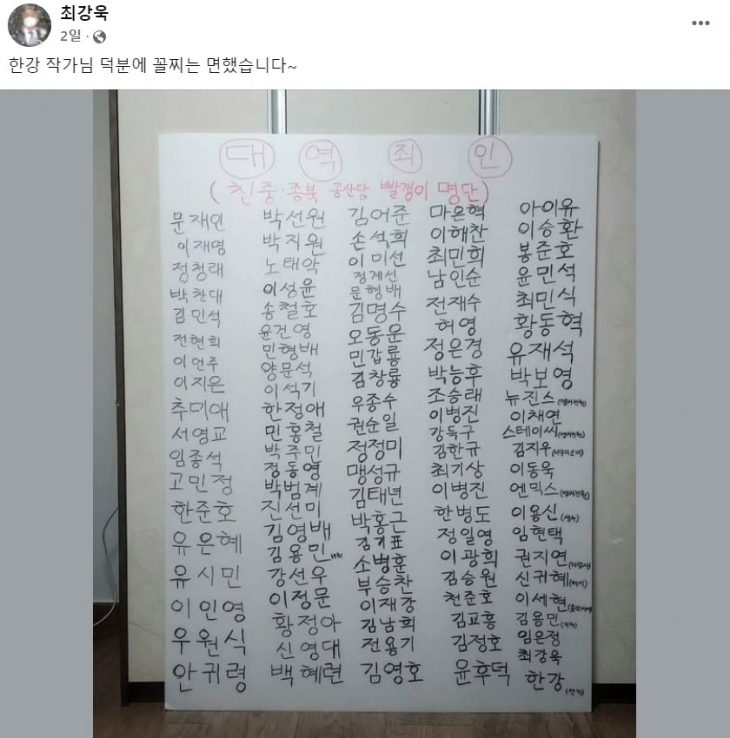 최강욱
2일 ·
한강 작가님 덕분에 꼴찌는 면했습니다~
대 역 죄 인
(친중·종북 공산당 빨갱이 명단)
문재인
이재명
정청래
박찬대
김민석
전현희
이언주
이지은
추미애
서영교
임종석
고민정
한준호
유은혜
유시민
이인영
우원식
안귀령
박선원
박지원
노태악
이성윤
송철호
윤건영
민형배
양문석
이석기
한정애
민홍철
박주민
정동영
박범계
진선미
김영배
김용민
강선우
이정문
황정아
신영대
백혜련
김어준
손석희
이미선
정계선
문형배
김명수
오동운
민갑룡
김창룡
우종수
권순일
정정미
맹성규
김태년
박홍근
김기표
소병훈
부승찬
이재강
김남희
전용기
김영호
마은혁
이해찬
최민희
남인순
전재수
허영
정은경
박능후
조승래
이병진
강득구
김한규
최기상
이병진
한병도
정일영
이광희
김승원
천준호
김교흥
김정호
윤후덕
아이유
이승환
봉준호
윤민석
최민식
황동혁
유재석
박보영
뉴진스(멤버전원)
이채연
스테이씨(멤버전원)
김지우
이동욱
엔믹스(멤버전원)
이용신
임현택
권지연
신귀혜
이세현
김용민
임은정
최강욱
한강(작가)